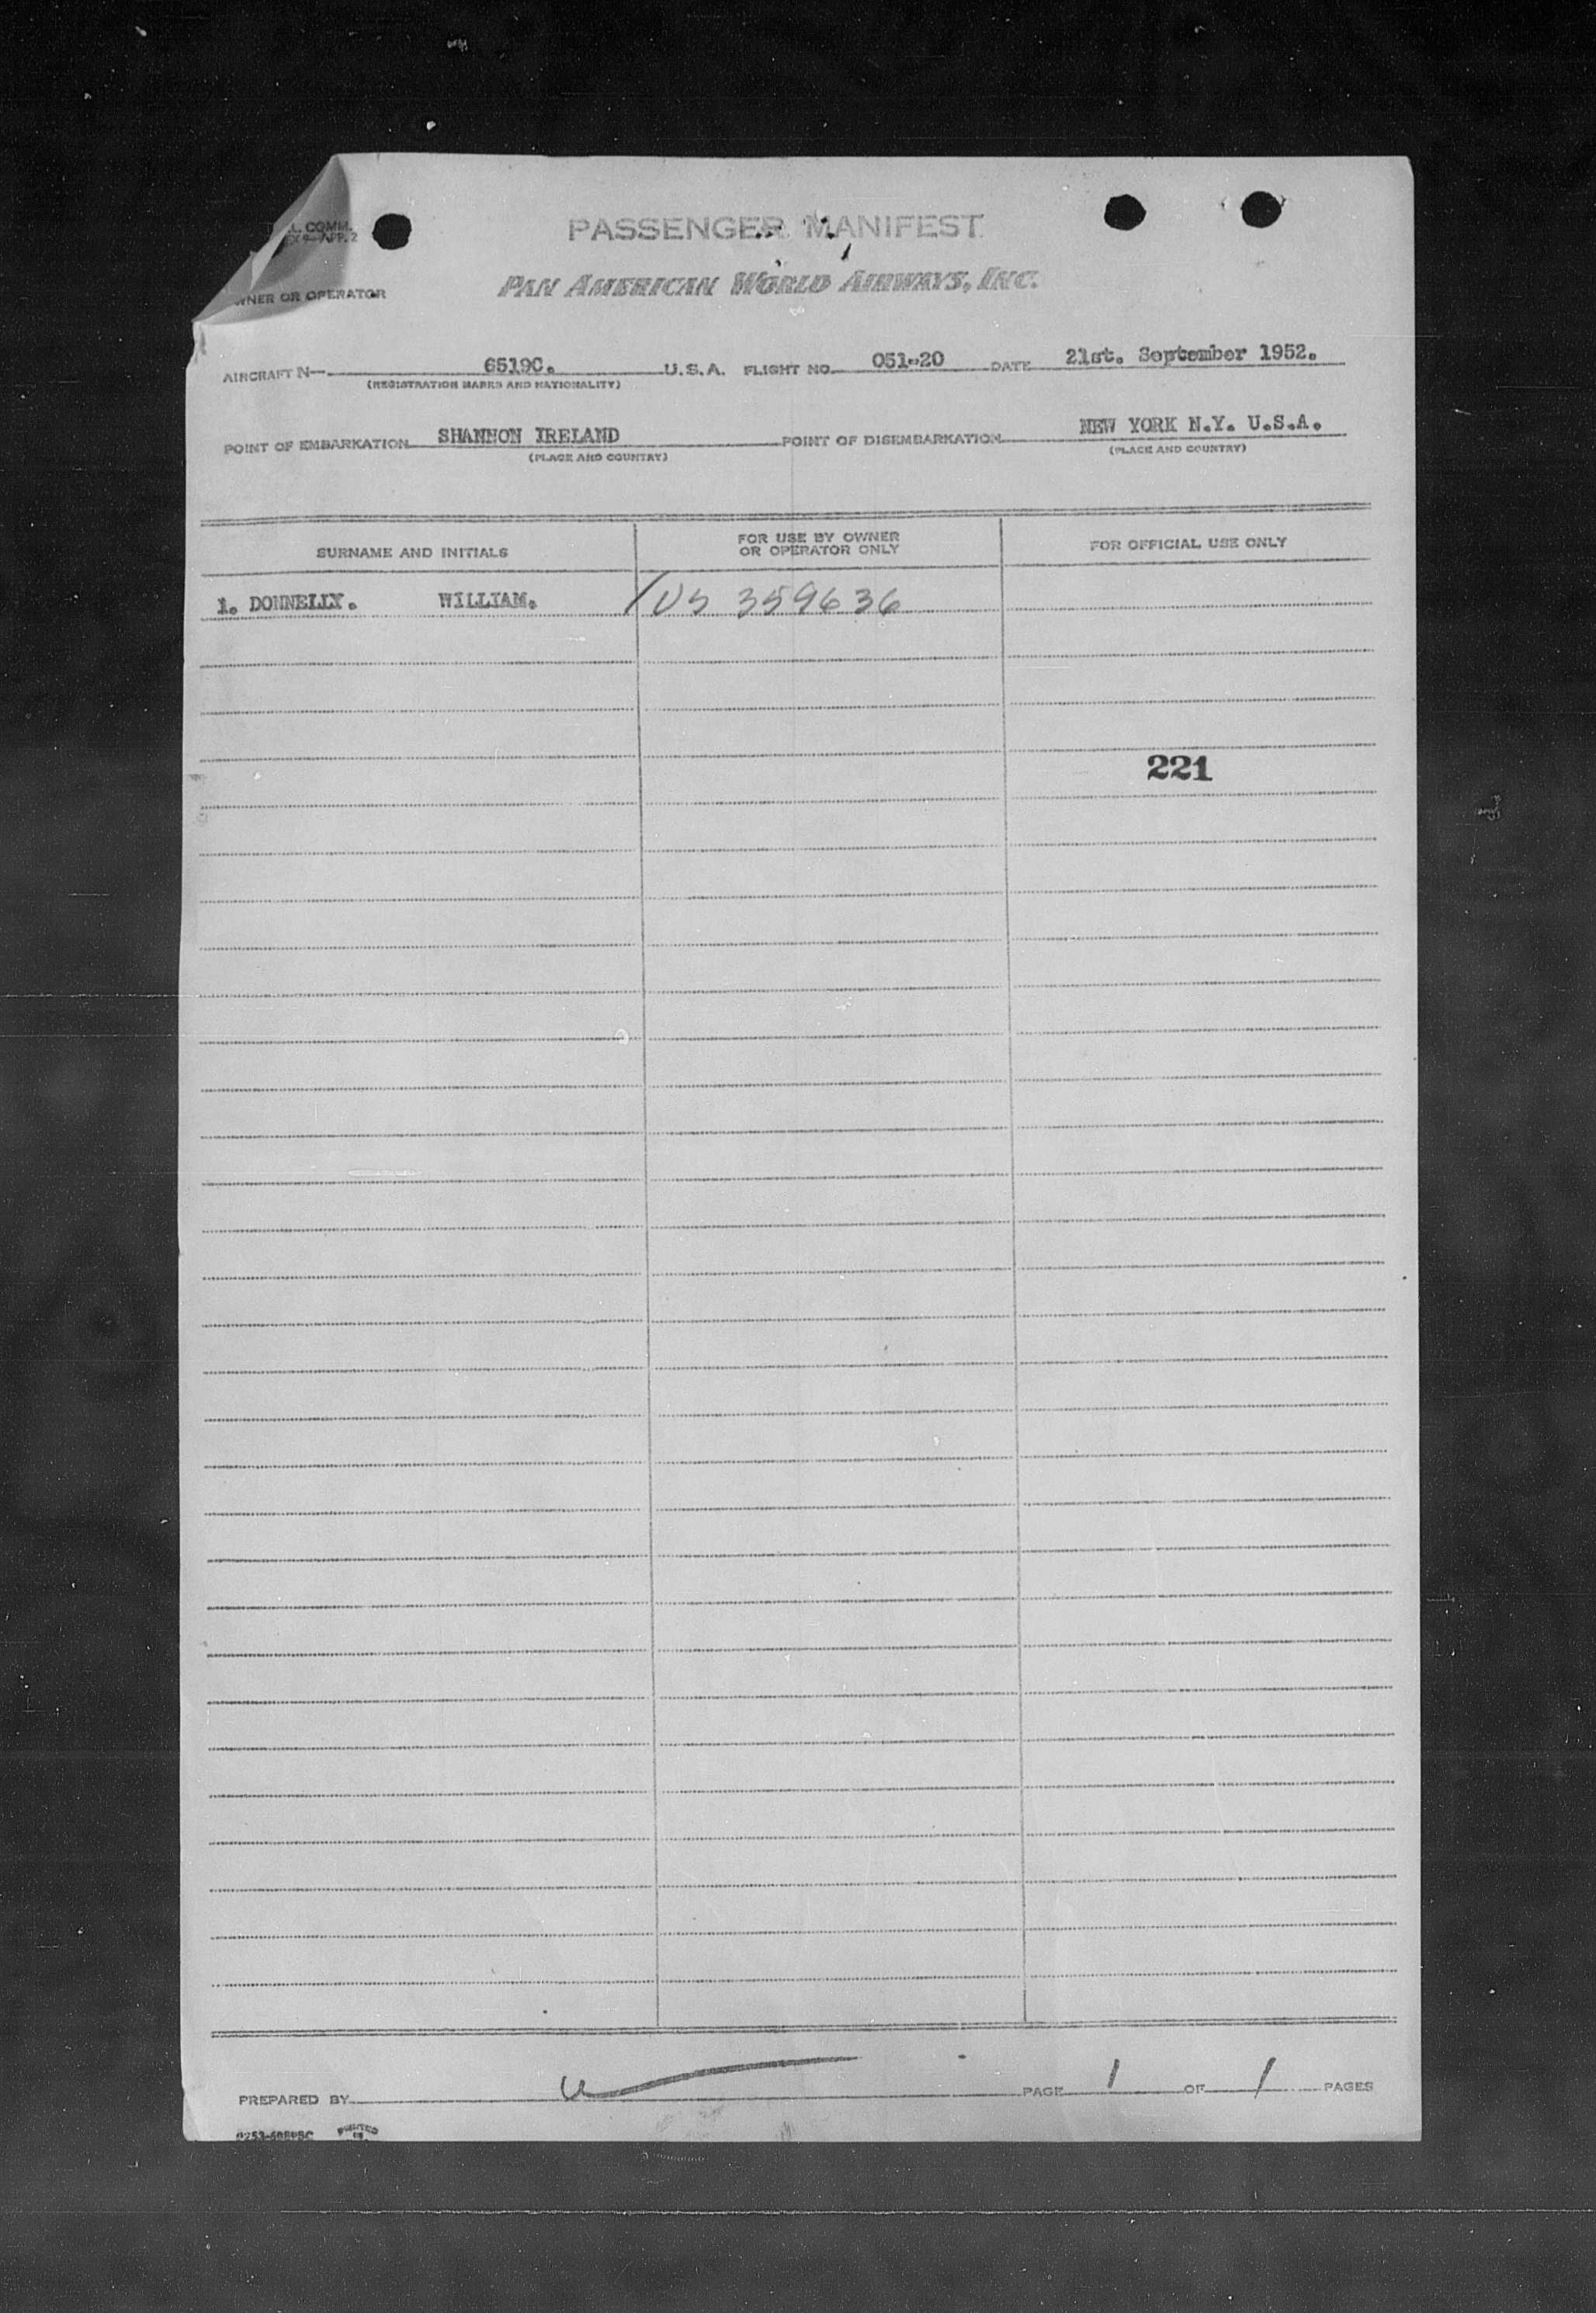 L. COMM.
APP. 2
PASSENGER MANIFEST
PAN AMERICAN WORLD AIRWAYS, INC.
OWNER OR OPERATOR
AIRCRAFT N— 6519C. U.S.A. FLIGHT NO. 051-20 DATE 21st. September 1952.
(REGISTRATION MARKS AND NATIONALITY)
POINT OF EMBARKATION SHANNON IRELAND POINT OF DISEMBARKATION NEW YORK N.Y. U.S.A.
(PLACE AND COUNTRY) (PLACE AND COUNTRY)
SURNAME AND INITIALS FOR USE BY OWNER OR OPERATOR ONLY FOR OFFICIAL USE ONLY
1. DONNELLY. WILLIAM. / US 359636
221
PREPARED BY PAGE 1 OF 1 PAGES
PRINTED